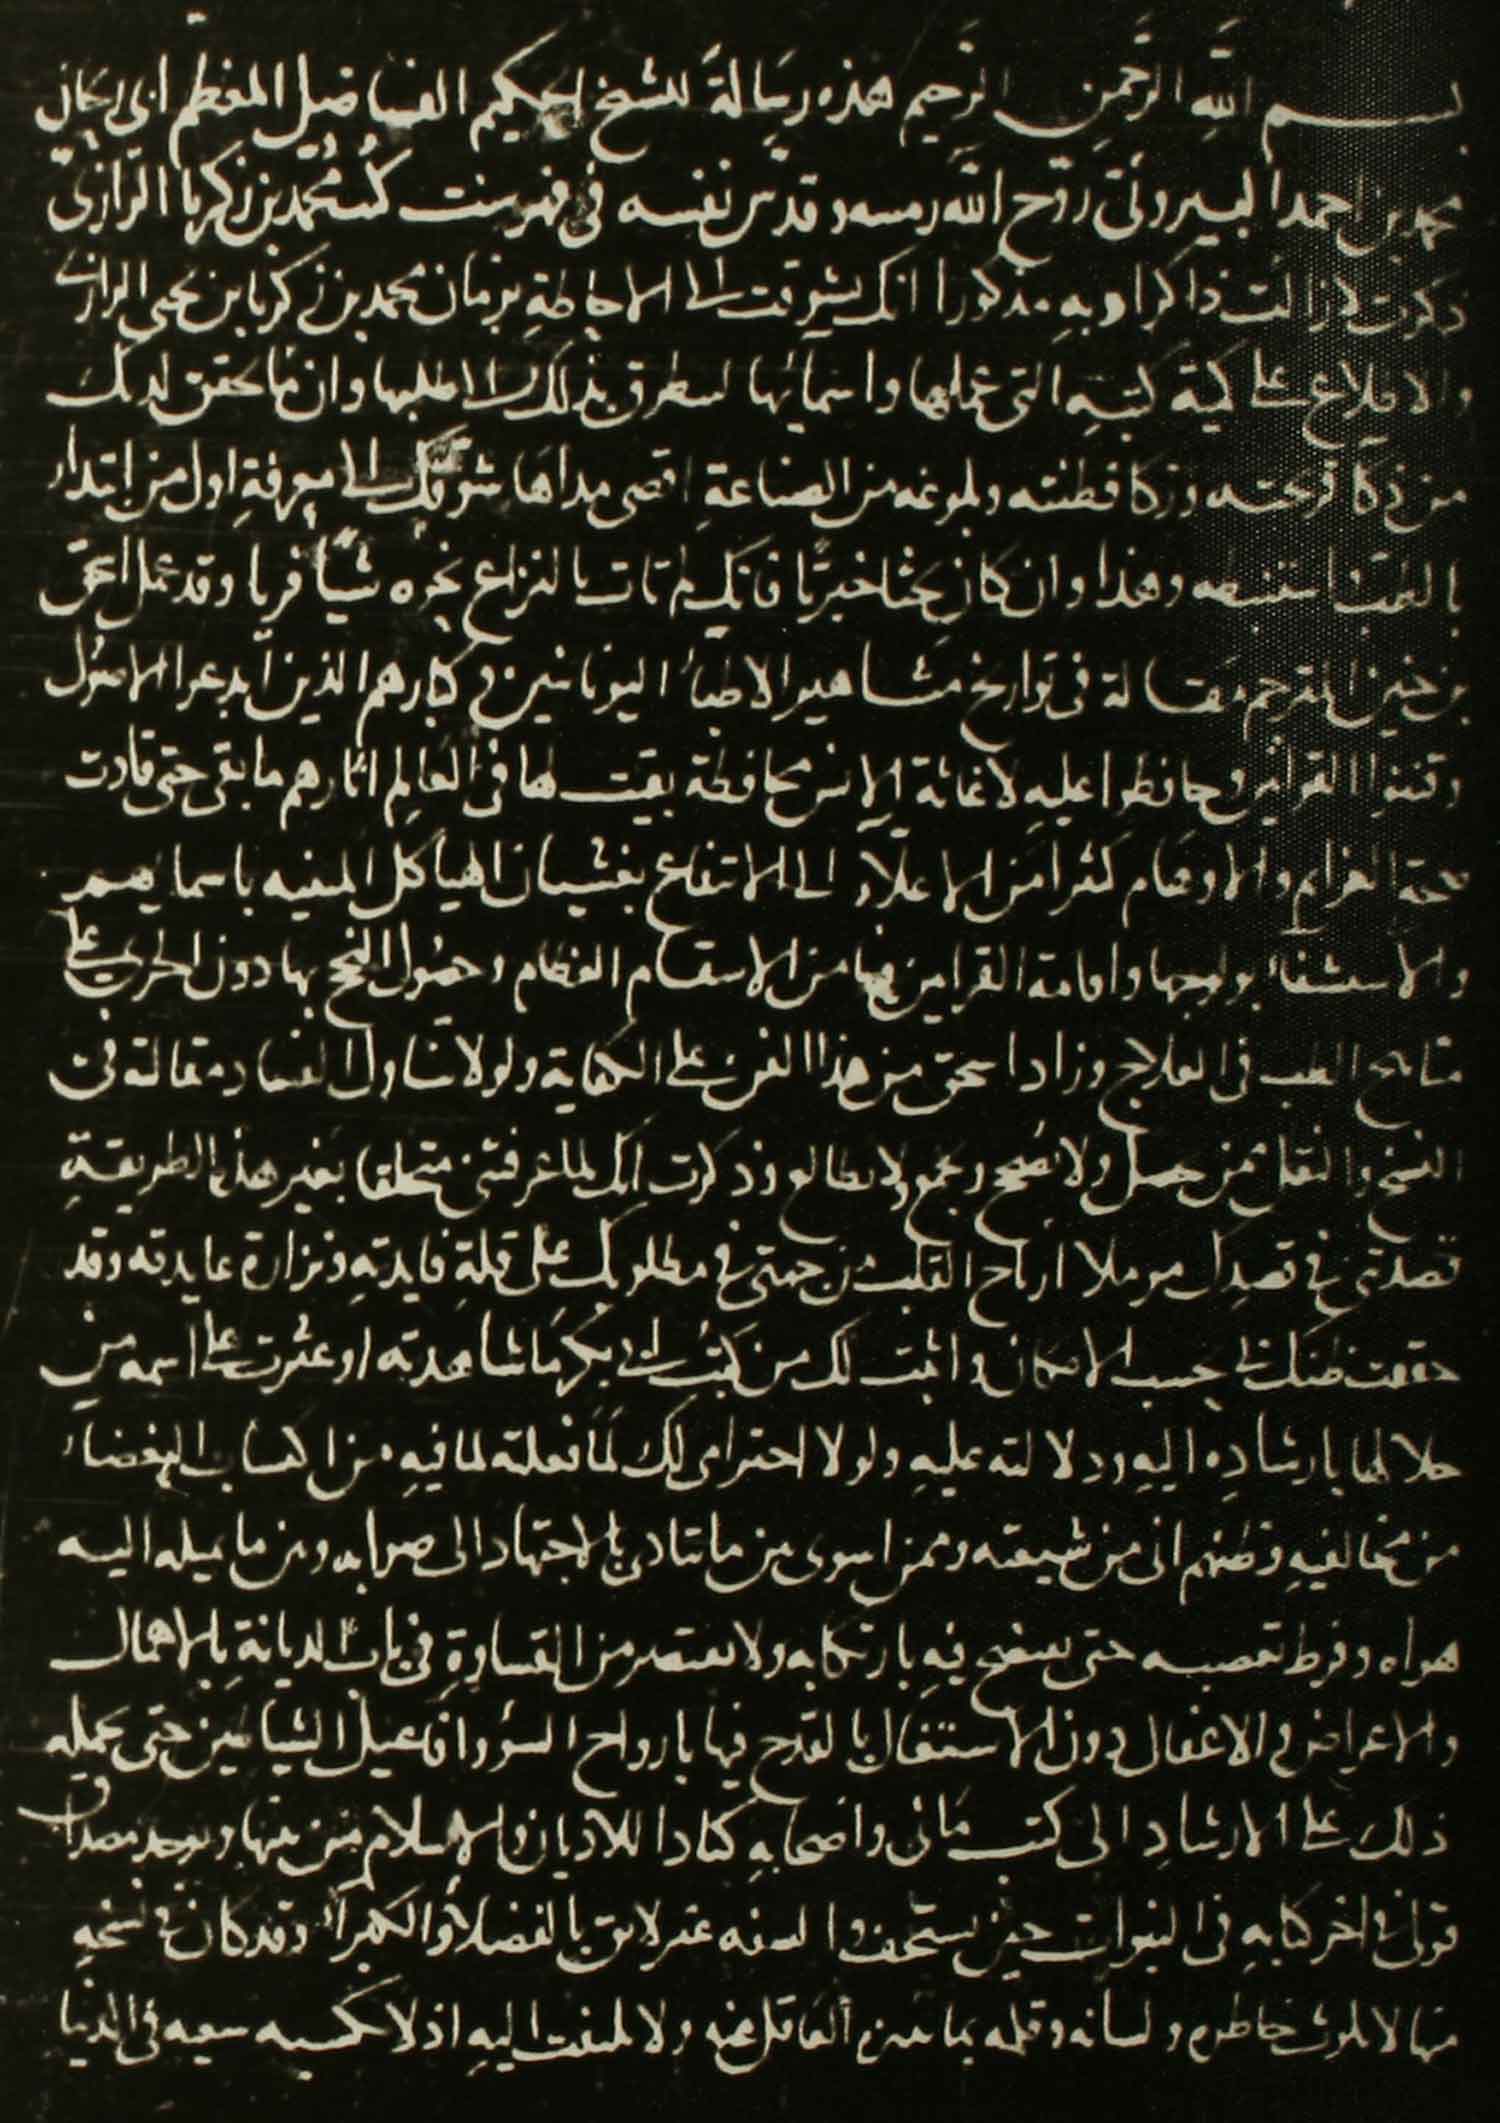 بسم الله الرحمن الرحيم هذه رسالة للشيخ الحكيم الفاضل المعظم ابي ريحان
محمد بن احمد البيروني روح الله رمسه وقدس نفسه في فهرست كتب محمد بن زكريا الرازي
ذكرت لا زالت ذاكرا وبه مذكورا انك تشوقت الى الاحاطة بزمان محمد بن زكريا بن يحيى الرازي
والاطلاع على كمية كتبه التي عملها واسمائها لتطرق بذلك الى طلبها وان ما تحقق لديك
من ذكا قريحته وزكا فطنته وبلوغه من الصناعة اقصى مداها شوقك الى معرفة اول من ابتدا
بالطب استنبطه وهذا وان كان بحثا خبريا فانك لم تات بالنزاع نحوه شيأ فريا وقد عمل اسحق
بن حنين المترجم مقالة في تواريخ مشاهير الاطباء اليونانيين وكبارهم الذين ابدعوا الاصول
وقننوا القوانين وحافظوا عليه لاغاثة الانس محافظة بقيت لها في العالم اثارهم ما بقي حتى قادت
صحة العزايم والاوهام كثرا من الاعلاء الى الانتفاع بغشيان الهياكل المبنيه باسمايهم
والاستشفاء بولوجها واقامة القرابين فيها من الاسقام العظام وحصول النجح بها دون الجري على
مناهج الطب في العلاج وزاد اسحق من هذا الفن على الكفاية ولولا تناول الفساد مقالته في
النسخ والنقل ممن حصل ولا يصحح ويجمع ولا يطالع وذكرت انك لما عرفتني متخلقا بغير هذه الطريقة
قصدتني في قصدك مرملا ارتياح القلب من جهتي في مطلوبك على قلة فايدته ونزارة عايدته وقد
حققت ظنك في بحسب الامكان واثبت لك من كتب ابي بكر ما شاهدته او عثرت على اسمه من
خلالها بارشاده اليه ودلالته عليه ولولا احترامي لك لما فعلته لما فيه من اكتساب البغضاء
من مخالفيه وظنهم اني من شيعته وممن اسوى بين ما يتادى بالاجتهاد الى صوابه وبين ما يميله اليه
هواه وفرط تعصبه حتى يفضح فيه بارتكابه ولا يقتصر من القساوة في باب الديانة بالاهمال
والاعراض والاغفال دون الاشتغال بالقدح فيها بارواح السوء وافاعيل الشياطين حتى يحمله
ذلك على الارشاد الى كتب ماني واصحابه كيادا للاديان والاسلام من بينها ويوجد مصداق
قولي في اخر كتابه في النبوات حين يستخف والسفه غير لايق بالفضلاء والكبراء وقد كان في نسخه
منها لا يلوث خاطره ولسانه وقلمه بما يتنزه العاقل عنه ولا يلتفت اليه اذ لا يكسبه سعيه في الدنيا